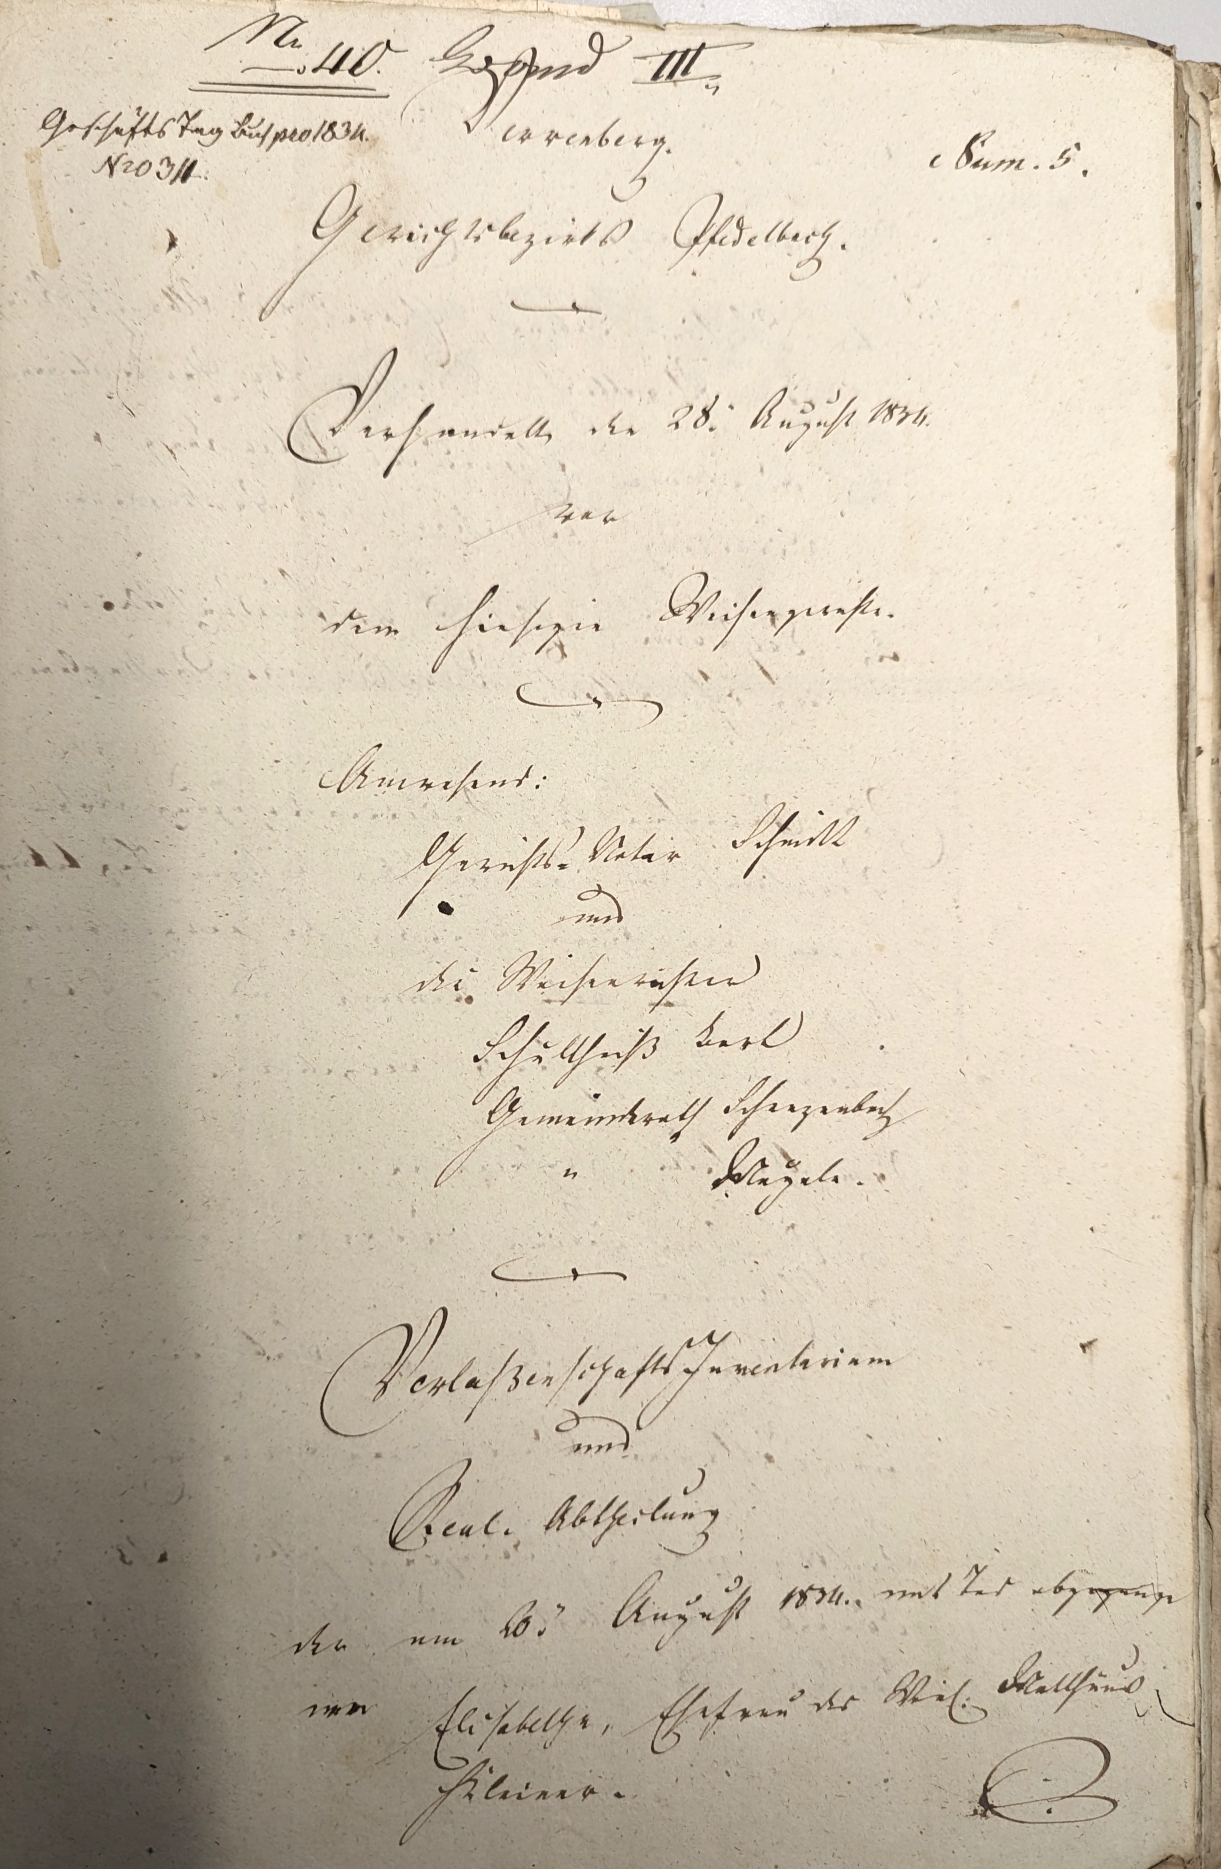 Nr. 40. Legend III.
Geschäfts Tag Buch pro 1834.
Nro 311.
Verrenberg.
Num. 5.
Gerichtsbezirks Pfedelbach.
Verhandelt den 28. August 1834.
vor
dem hiesigen Waisengericht.
Anwesend:
Gerichts-Notar Schmidt
und
die Waisenrichter
Schultheiß Karl
Gemeinderath Schenzenbach
" Mugele.
Verlaßenschafts Inventarium
und
Real-Abtheilung
der am 20. August 1834. mit Tod abgegange
nen Elisabetha, Ehefrau des Matthäus
Kleiner.